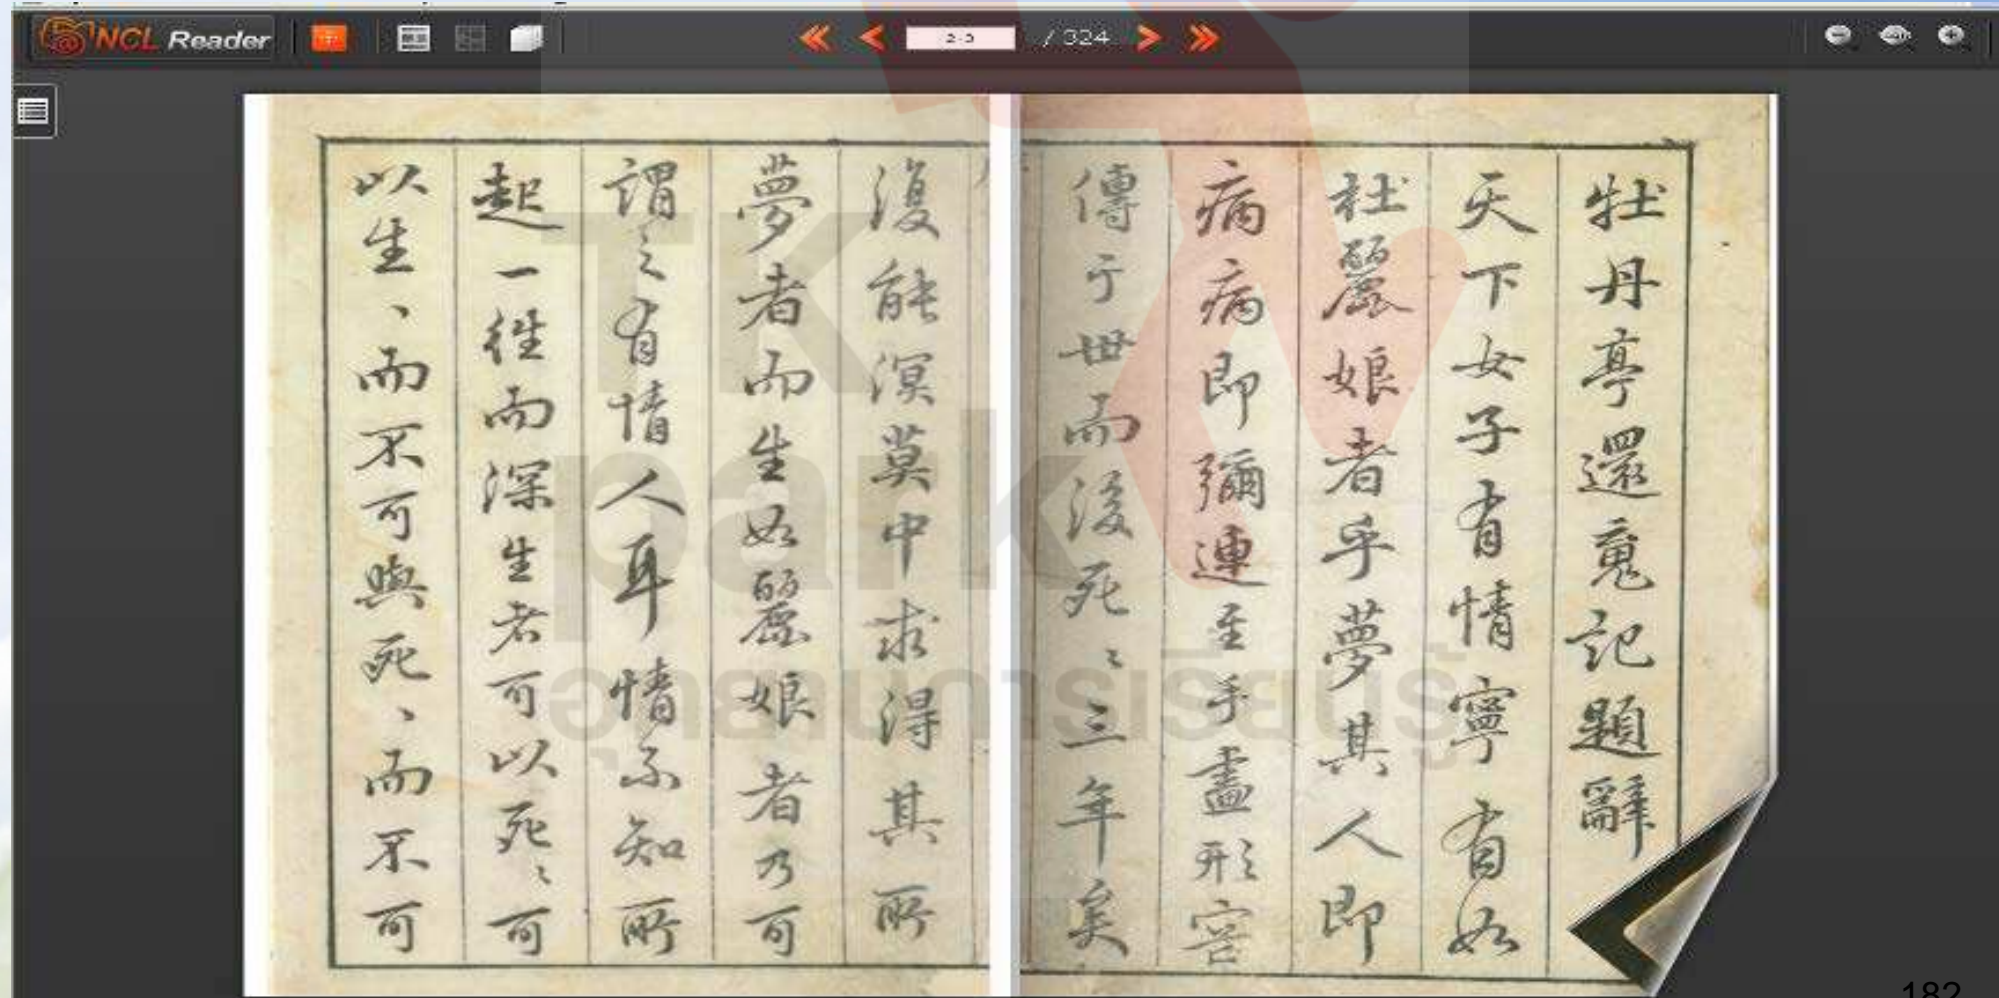 NCL Reader
2-3 / 324
牡丹亭還魂記題辭
天下女子有情寧有如
杜麗娘者乎夢其人即
病病即彌連至手畫形容
傳于世而後死〻三年矣
復能溟莫中求得其所
夢者而生如麗娘者乃可
謂之有情人耳情不知所
起一往而深生者可以死〻可
以生、而不可與死、而不可
TK
park
อุทยานการเรียนรู้
182